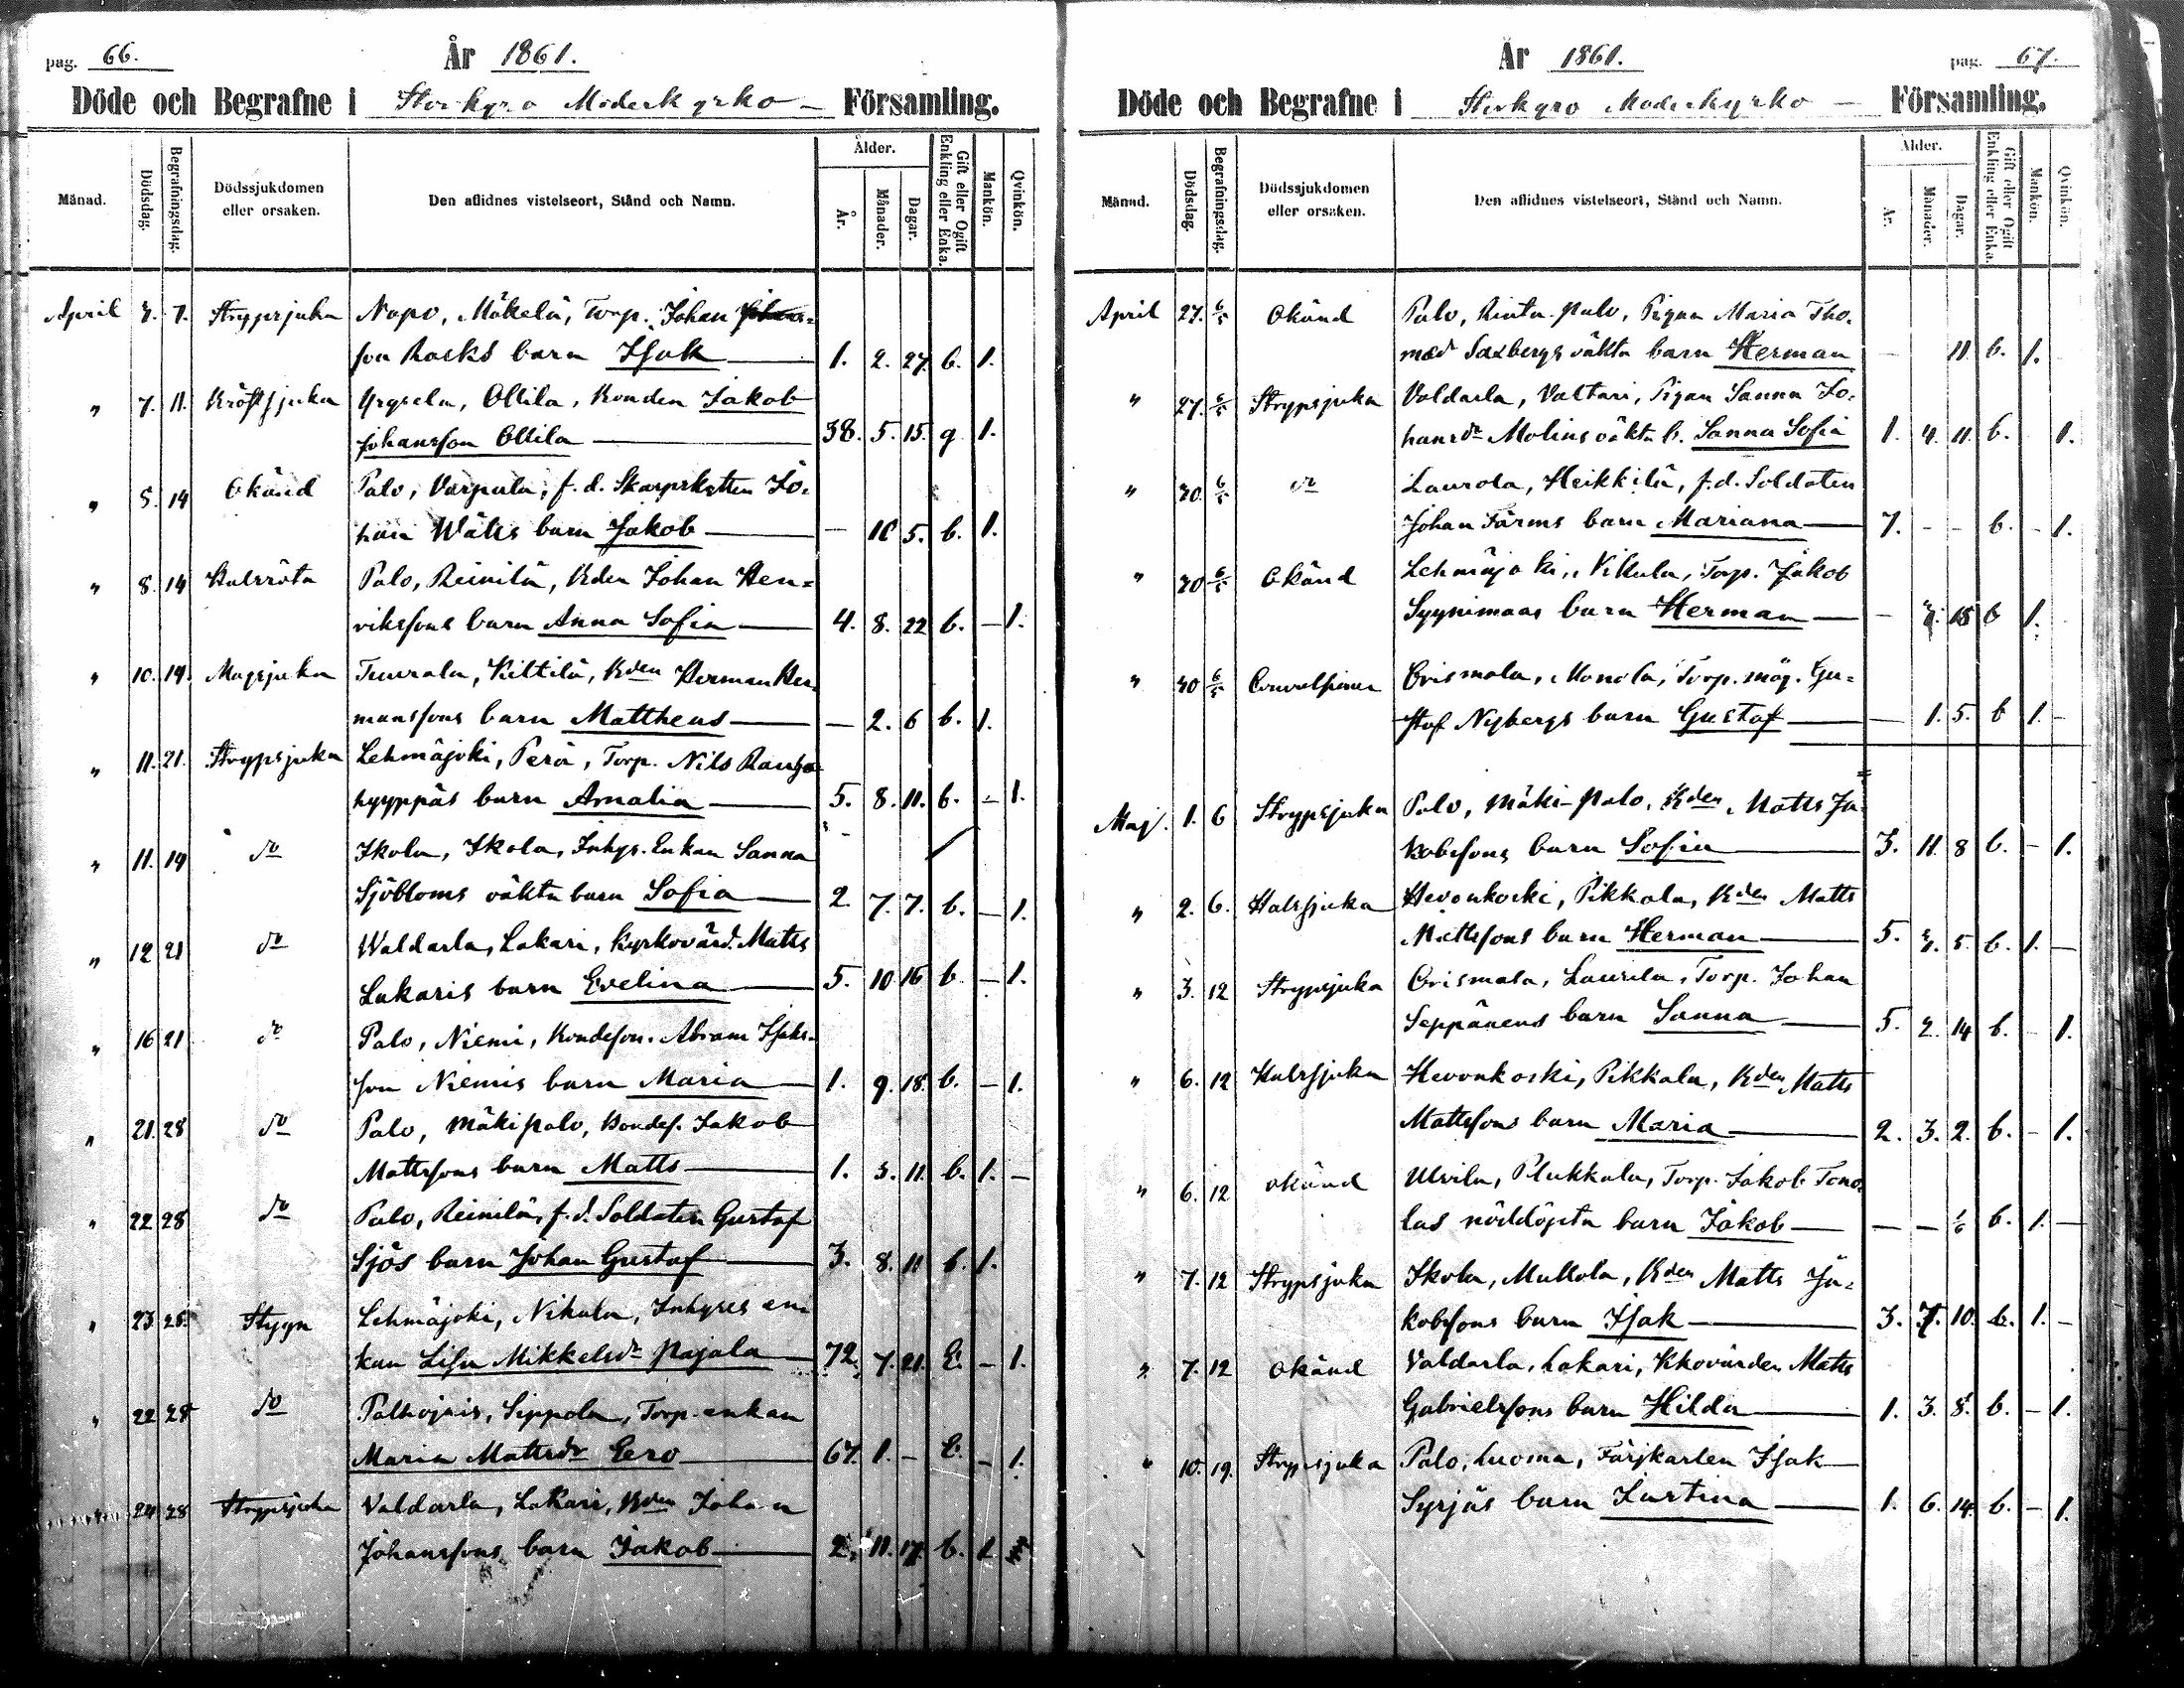 pag. 66.
År 1861.
Döde och Begrafne i Storkyro Moderkyrko - Församling.
Månad. Dödsdag. Begrafningsdag. Dödssjukdomen eller orsaken. Den aflidnes vistelseort, Stånd och Namn. Ålder. År. Månader. Dagar. Gift eller Ogift Enkling eller Enka. Mankön. Qvinkön.
April 3. 7. Strypsjuka Napo, Mäkelä, Torp. Johan Johans=
son Rasks barn Isak 1. 2. 27. b. 1.
" 7. 11. Kräftsjuka Yryselä, Ollila, Bonden Jakob
Johansson Ollila 38. 5. 15. g 1.
" 5. 14 Okänd Palo, Varpula, f.d. Skarpskytten Jo=
han Wäks barn Jakob — 10 5. b. 1.
" 8. 14 Halsröta Palo, Reinilä, Bden Johan Hen=
rikssons barn Anna Sofia 4. 8. 22 b. — 1.
" 10. 14. Magsjuka Tuurala, Kiltilä, Bden Herman Her=
manssons barn Mattheus — 2. 6 b. 1.
" 11. 21. Strypsjuka Lehmäjoki, Perä, Torp. Nils Rauha
hyyppäs barn Amalia 5. 8. 11. b. — 1.
" 11. 14 do Ikola, Ikola, Inhys. Enkan Sanna
Sjöbloms oäkta barn Sofia 2. 7. 7. b. — 1.
" 12 21 do Waldarla, Lakari, Kyrkovärd. Matts
Lakaris barn Evelina 5. 10 16 b — 1.
" 16 21 do Palo, Niemi, Bondeson. Abram Isaks=
son Niemis barn Maria 1. 9. 18. b. — 1.
" 21. 28 do Palo, Mäkipalo, Bondes. Jakob
Mattssons barn Matts 1. 3. 11. b. 1. —
" 22 28 do Palo, Reinilä, f.d. Soldaten Gustaf
Sjös barn Johan Gustaf 3. 8. 11 b. 1.
" 23 28. Stygn Lehmäjoki, Nikula, Inhyses en=
kan Lisa Mikkelsdr Pajala 72. 7. 21. E. — 1.
" 22 28 do Palhojais, Seppola, Torp. enkan
Maria Mattsdr Eero 67. 1. — E. — 1.
" 24 28 Strypsjuka Valdarla, Lakari, Bden Johan
Johanssons barn Jakob 2. 11. 17. b. 1
År 1861.
pag. 67.
Döde och Begrafne i Storkyro Moderkyrko — Församling.
Månad. Dödsdag. Begrafningsdag. Dödssjukdomen eller orsaken. Den aflidnes vistelseort, Stånd och Namn. Ålder. År. Månader. Dagar. Gift eller Ogift Enkling eller Enka. Mankön. Qvinkön.
April 27. 6/5 Okänd Palo, Rinta-palo, Pigan Maria Tho=
mæd Saxbergs oäkta barn Herman — 11. b. 1.
" 27. 6/5 Strypsjuka Valdarla, Valtari, Pigan Sanna Jo=
hansdr Molins oäkta b. Sanna Sofia 1. 4. 11. b. 1.
" 30. 6/5 do Laurola, Heikkilä, f.d. Soldaten
Johan Färms barn Mariana 7. — — b. — 1.
" 30 6/5 Okänd Lehmäjoki, Nikula, Torp. Jakob
Syynimaas barn Herman — 3. 15 b 1.
" 30 6/5 Convulsioner Orismala, Manola, Torp. måg. Gu=
staf Nybergs barn Gustaf — 1. 5. b 1. —
Maj. 1. 6 Strypsjuka Palo, Mäki-palo, Bden Matts Ja=
kobssons barn Sofia 3. 11. 8 b. — 1.
" 2. 6. Halssjuka Hevonkoski, Pikkala, Bden Matts
Mattssons barn Herman 5. 3. 5. b. 1. —
" 3. 12 Strypsjuka Orismala, Laurila, Torp. Johan
Seppänens barn Sanna 5. 2. 14 b. — 1.
" 6. 12 Halssjuka Hevonkoski, Pikkala, Bden Matts
Mattssons barn Maria 2. 3. 2. b. — 1.
" 6. 12 okänd Ulvila, Plukkala, Torp. Jakob Tono=
las nöddöpta barn Jakob — — 1/6 b. 1. —
" 7. 12 Strypsjuka Ikola, Mullola, Bden Matts Ja=
kobssons barn Isak 3. 7. 10. b. 1. —
" 7. 12 okänd Valdarla, Lakari, Kkovärden Matts
Gabrielssons barn Hilda 1. 3. 8. b. — 1.
" 10. 19. Strypsjuka Palo, Luoma, Färjkarlen Isak
Syrjäs barn Justina 1. 6. 14. b. — 1.